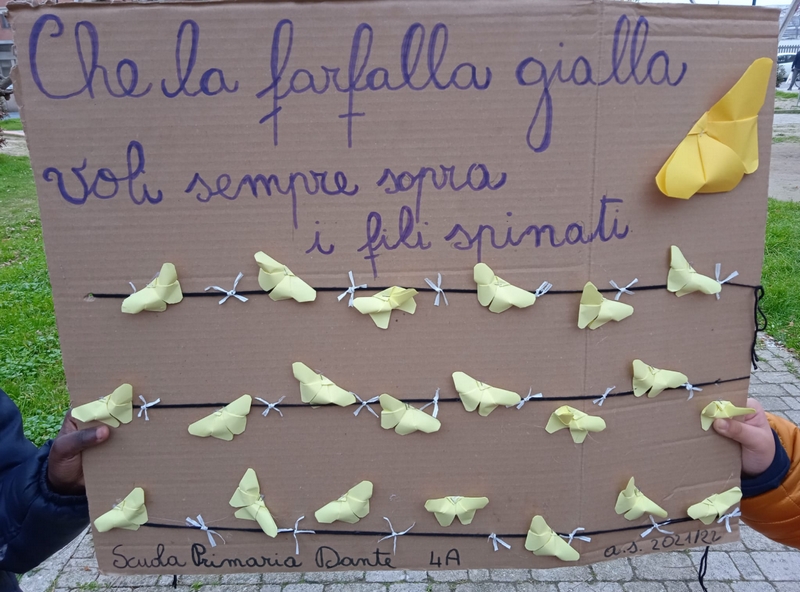 Che la farfalla gialla
voli sempre sopra
i fili spinati
Scuola Primaria Dante 4A
a.s. 2021/22